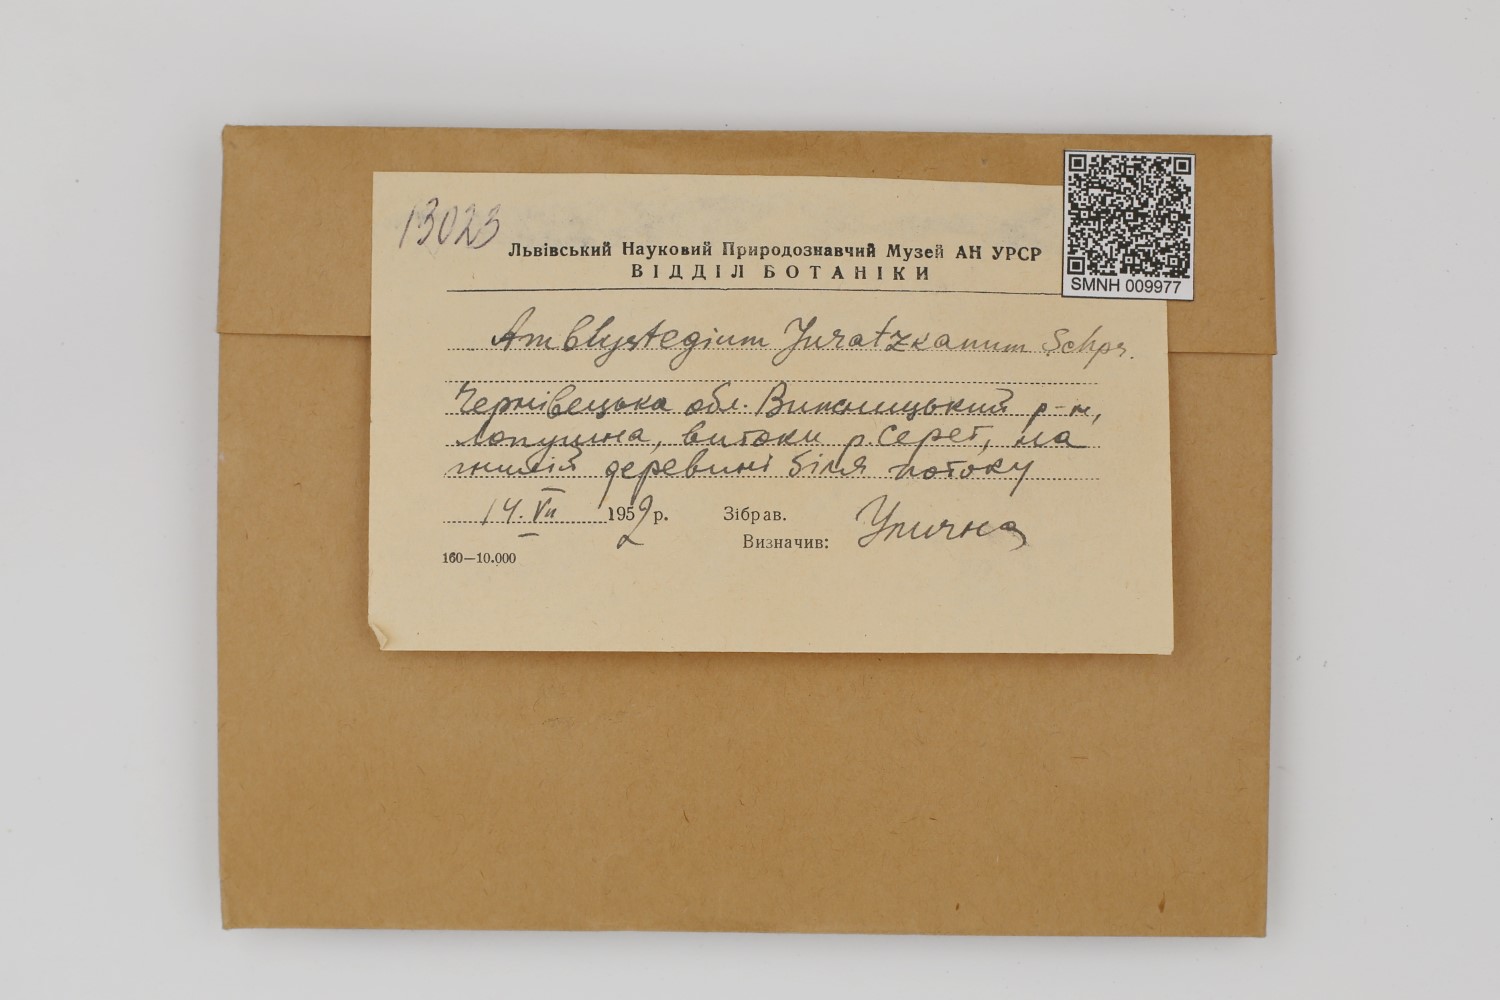 13023
Львівський Науковий Природознавчий Музей АН УРСР
ВІДДІЛ БОТАНІКИ
SMNH 009977
Amblystegium Juratzkanum Schpr.
Чернівецька обл. Вижницький р-н,
Лопушна, витоки р. Серет, на
гнилій деревині біля потоку
14. VII 1952 р. Зібрав.
Визначив: Улична
160—10.000